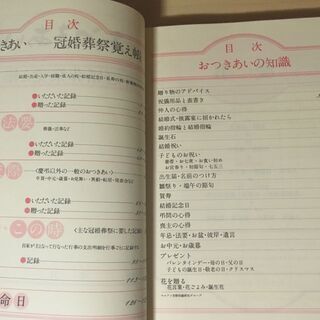 目次
きあい
冠婚葬祭覚え帳
●いただいた記録
●贈った記録
法要
●いただいた記録
●贈った記録
〈慶弔以外の一般のおつきあい〉
いただいた記録
贈った記録
この時
〈主な冠婚葬祭に要した記録〉
●記録
命日
目次
おつきあいの知識
贈り物のアドバイス
祝儀用品と表書き
仲人の心得
結婚式・披露宴に招かれたら
婚約指輪と結婚指輪
誕生石
結婚祝い
子どものお祝い
帯祝・お七夜・お食い初め
お宮参り・初節句・七五三
出生届・名前のつけ方
雛祭り・端午の節句
賀寿
結婚記念日
弔問の心得
喪主の心得
年忌・法要・お盆・彼岸・遺言
お中元・お歳暮
プレゼント
バレンタインデー・母の日・父の日
子どもの誕生日・敬老の日・クリスマス
花を贈る
花言葉・花ごよみ・誕生花